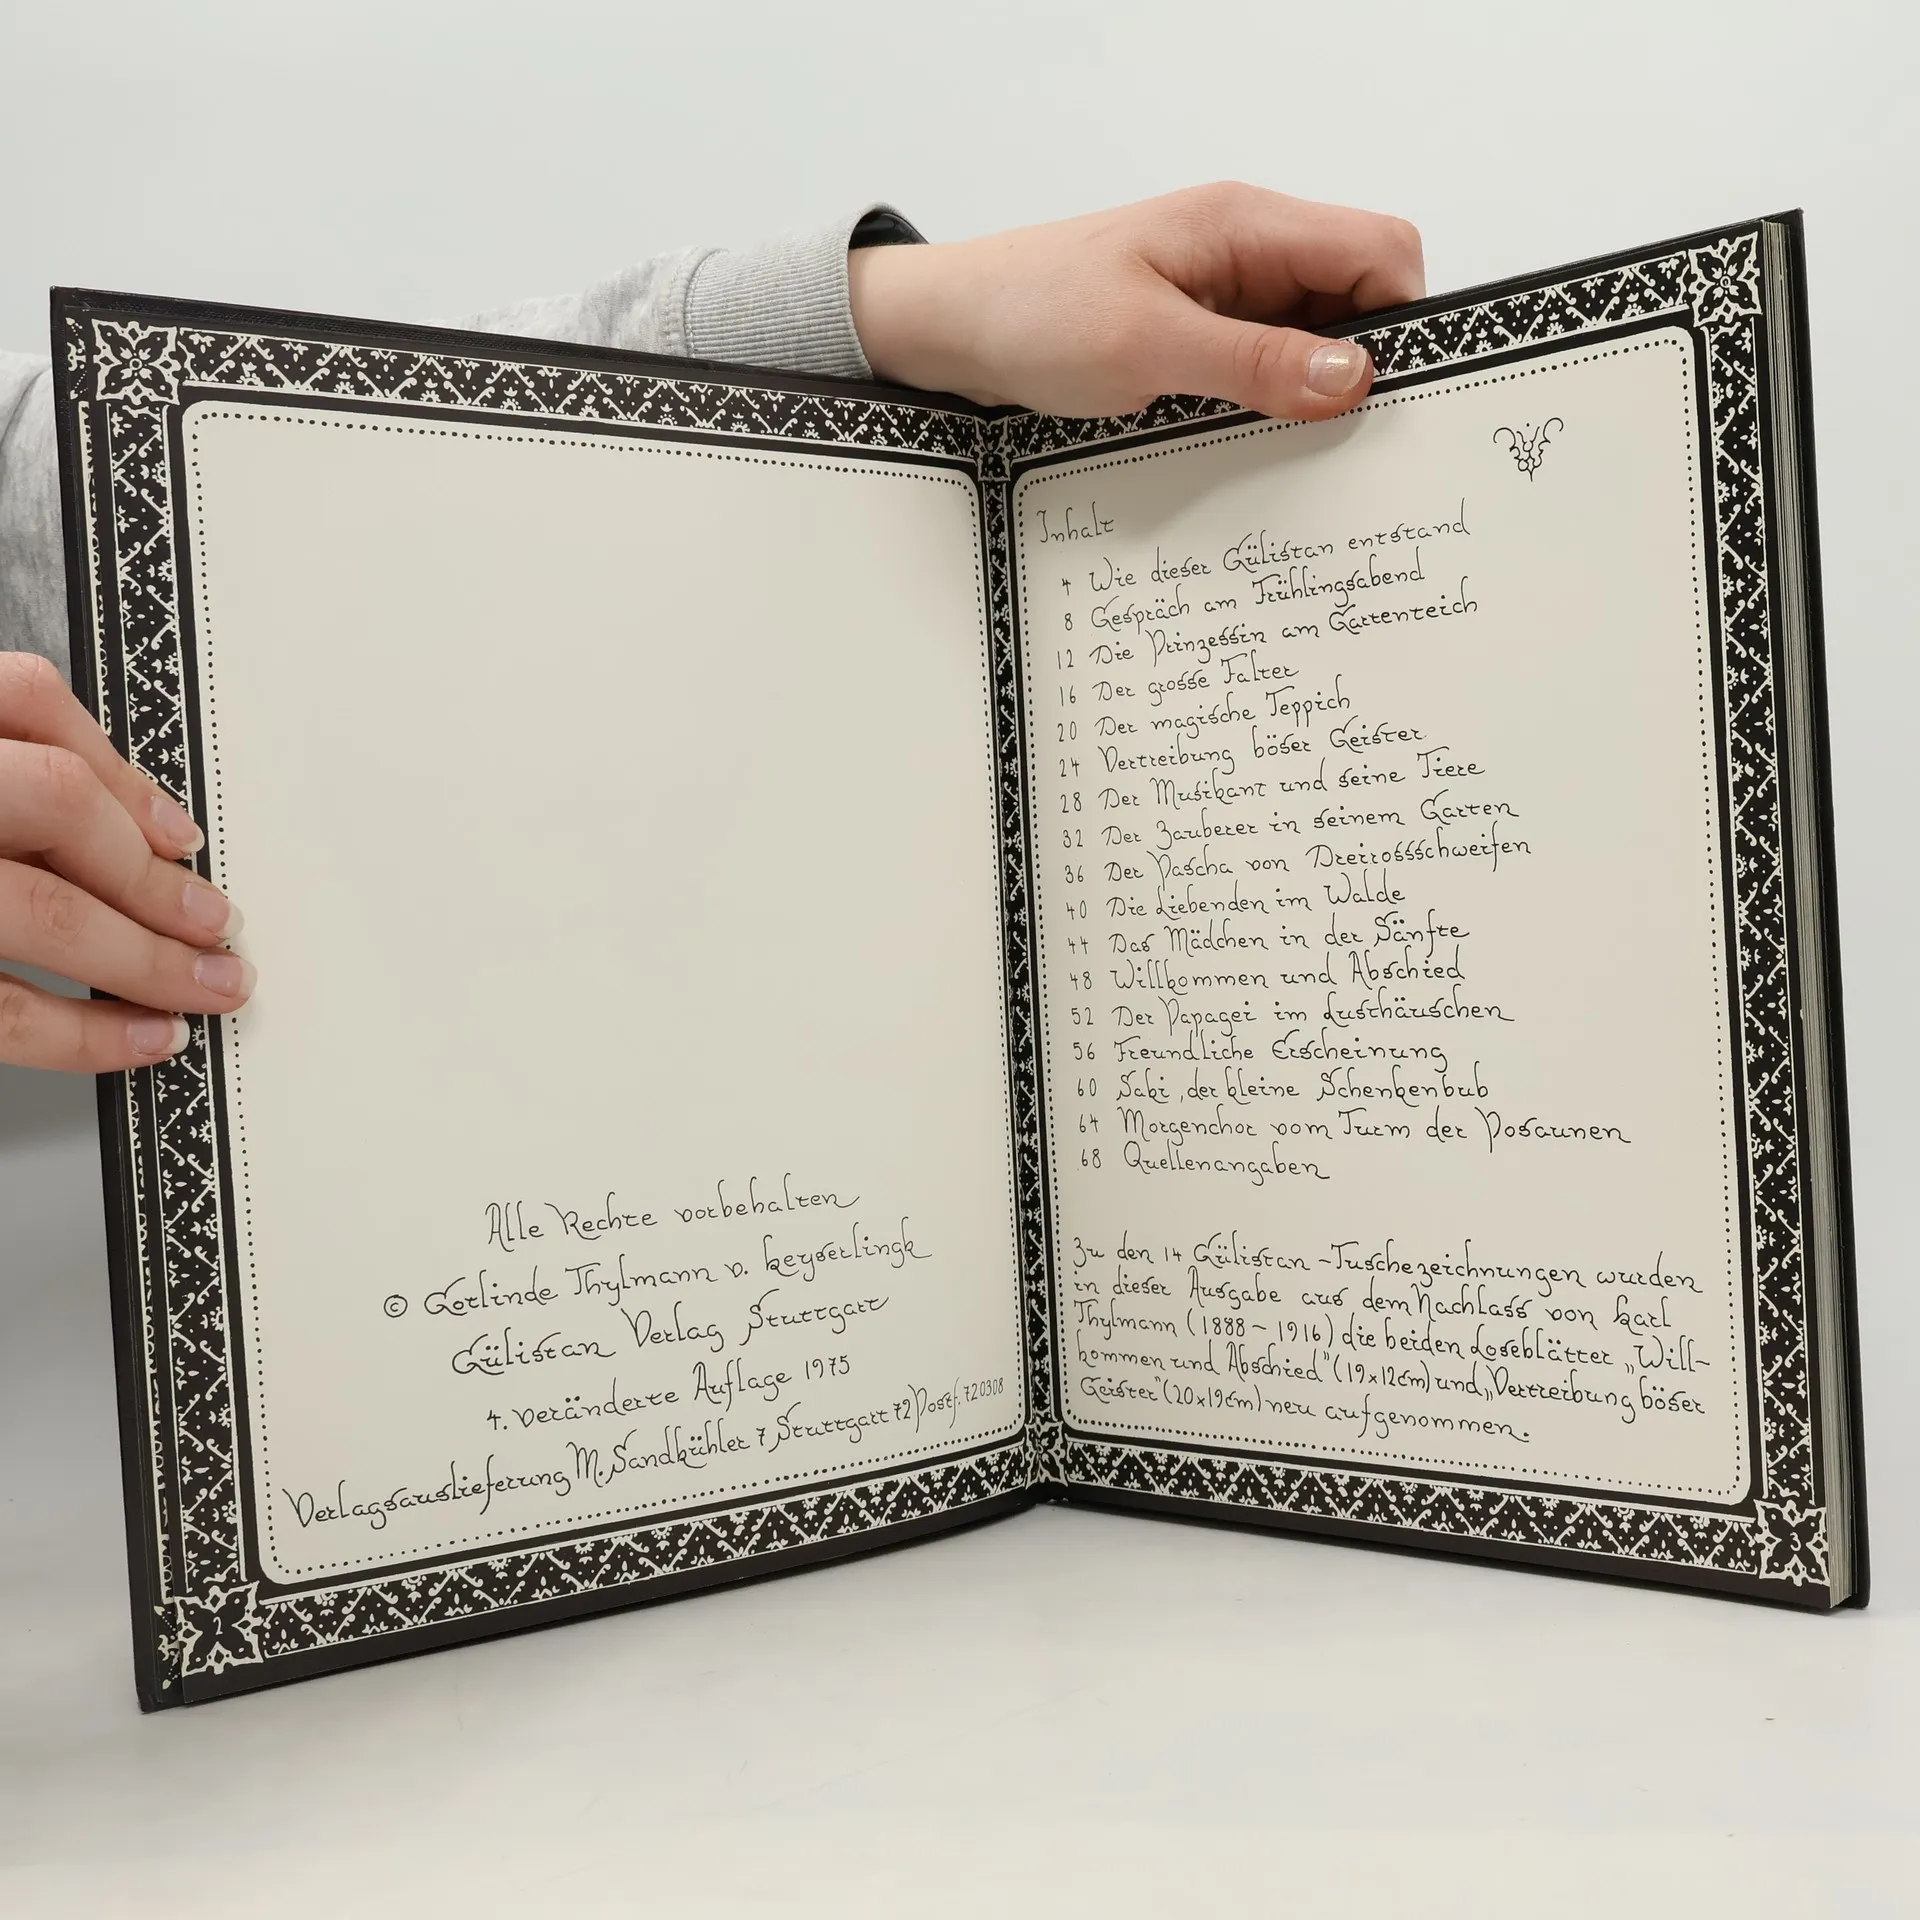 Alle Rechte vorbehalten
© Gorlinde Thylmann v. Keyserlingk
Gülistan Verlag Stuttgart
4. veränderte Auflage 1975
Verlagsauslieferung M. Sandkühler 7 Stuttgart 72 Postf. 720308
2
Inhalt
4 Wie dieser Gülistan entstand
8 Gespräch am Frühlingsabend
12 Die Prinzessin am Gartenteich
16 Der grosse Falter
20 Der magische Teppich
24 Vertreibung böser Geister
28 Der Musikant und seine Tiere
32 Der Zauberer in seinem Garten
36 Der Pascha von Dreirossschweifen
40 Die Liebenden im Walde
44 Das Mädchen in der Sänfte
48 Willkommen und Abschied
52 Der Papagei im Lusthäuschen
56 Freundliche Erscheinung
60 Saki, der kleine Schenkenbub
64 Morgenchor vom Turm der Posaunen
68 Quellenangaben
Zu den 14 Gülistan-Tuschezeichnungen wurden
in dieser Ausgabe aus dem Nachlass von Karl
Thylmann (1888~1916) die beiden Loseblätter „Will-
kommen und Abschied" (19x12cm) und „Vertreibung böser
Geister" (20x19cm) neu aufgenommen.
3